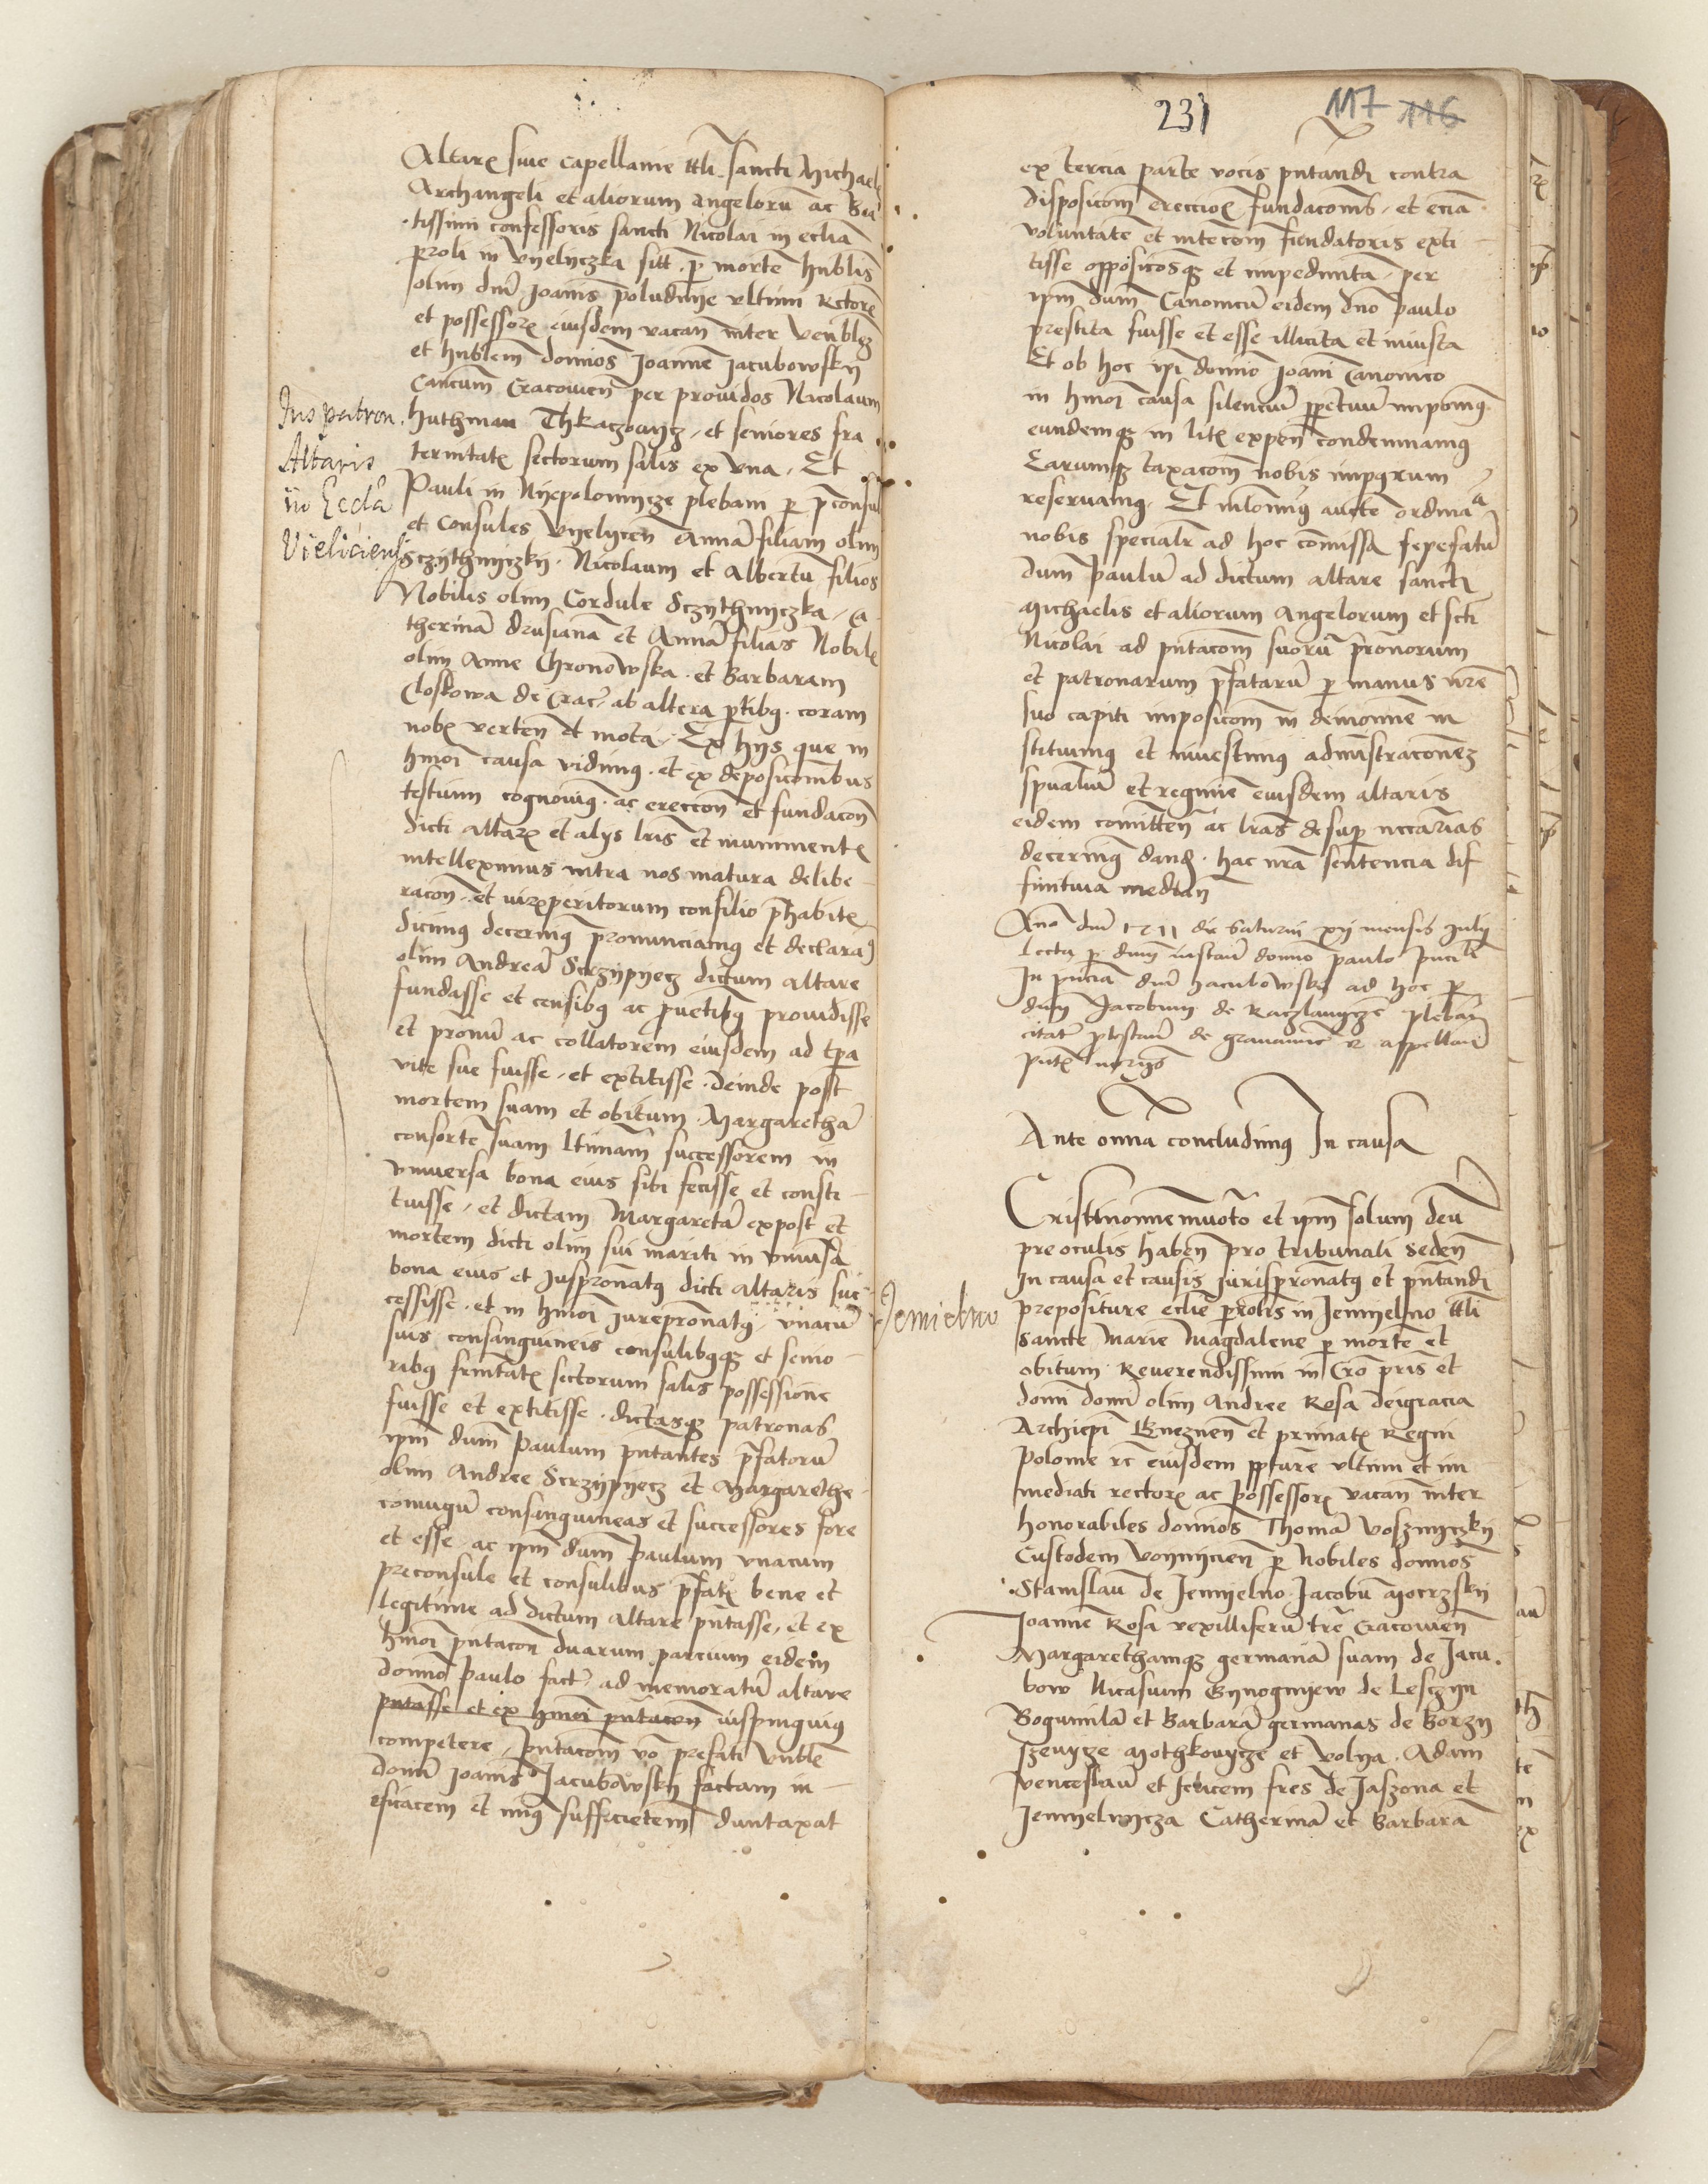 Altarꝭ siue capellanie ttli sancti Michael
Archangeli et aliorum angelorū ac Bea
tissimi confessoris sancti Nicolai in eclia
proli in Vyelyczka sitt p mortē hnblis
olim dni Joanis poludnye vltimi rectorꝭ
et possessorꝭ eiusdem vacan inter venblez
et hnblem domios Joanne Jacubowsky
Cancum Cracouien per prouidos Nicolaum
huthman Thkaczowycz, et seniores fra
ternitatꝭ sectorum salis ex vna. Et
Pauli in Nyepolomycze plebani p pconsul
et consules Vyelycen Annā filiam olim
Sczythnyczky. Nicolaum et Albertū filios
Nobilis olim Cordule Sczythnyczka, Ca
therinā drusianā et Annā filias Nobilꝭ
olim Anne Chronowska. et Barbaram
Closkowa de Crac. ab altera ptibꝫ. coram
nobꝭ verten et mota. Ex hys que in
hmoi causa vidimꝫ. et ex deposicōnibus
testium cognouimꝫ. ac ereccon et fundacon
dicti altarꝭ et alys lris et munimentꝭ
intelleximus intra nos matura delibe
racon. et iurꝭperitorum consilio phabitꝭ
dicimꝫ decernimꝫ pronunciamꝫ et declaramꝫ
olim Andreā Scrzypyecz dictum altare
fundasse et censibꝫ ac puetibꝫ prouidisse
et pronū ac collatorem eiusdem ad tpa
vite sue fuisse, et extitisse. deinde post
mortem suam et obitum. Margarethā
consortē suam ltimam successorem in
vniuersa bona eius sibi fecisse et consti
tuisse, et dictam Margaretā expost et
mortem dicti olim sui mariti in vniusa
bona eius et juspronatꝫ dicti altaris suc
cessisse. et in hmoi jurepronatꝫ. vnacū
suis consanguineis consulibꝫqꝫ et senio
ribꝫ frnitatꝭ sectorum salis possessione
fuisse et extitisse. dictasqꝫ patronas
ipm dnm Paulum pntantes pfatorū
olim Andree Scrzypyecz et Margarethe
coniugū consanguineas et successores fore
et esse. ac ipm dnm Paulum vnacum
preconsule et consulibus pfatꝭ bene et
legitime ad dictum altare pntasse, et ex
hmoi pntacon duarum parcium eidem
domio Paulo fact. ad memoratū altare
pntasse et ex hmoi pntacon iuspinguiꝫ
competere, pntacom vō prefati vnblē
domi Joanis Jacubowsky factam in
eficacem et minꝫ sufficietem duntaxat
Jus patron.
Altaris
in Eccla
Vieliciensi
231
117 116
ex tercia parte vocis pntandi contra
disposicom ereccioꝭ fundacoms, et eciā
voluntatē et intecom fundatoris exti
tisse opposicosqꝫ et impedimta, per
ipm dnm Canonicū eidem dno Paulo
prestita fuisse et esse illicita et iniusta
Et ob hoc ipi domio Joani Canonico
in hmoi causa silenciū ppetuū imponimꝫ
eundemqꝫ in litꝭ expen condemnamꝫ
Earumqꝫ taxacom nobis impgrum
reseruamꝫ. Et nlominꝫ aucte ordina a
nobis specialr ad hoc comissa sepefatū
dnm Paulū ad dictum altare sancti
Michaelis et aliorum Angelorum et scti
Nicolai ad pntacom suorū pronorum
et patronarum pfatarū p manus nre
suo capiti imposicom in deinomie in
stituimꝫ et inuestimꝫ administraconez
spualiū et regimē eiusdem altaris
eidem comitten ac lras desup nccarias
decernimꝫ dand. hac nra sentencia dif
finitiua median
Ano dni 1511 die Saturni xii mensis Julij
In pncia dni Jacubowsky ad hoc p
dnm Jacobum de Raczlauycze pleban
citatꝭ ptestan de grauamie et appellan
Ante omia concludimꝫ In causa
Cristinomie inuocato et ipm solum deū
pre oculis haben pro tribunali seden
In causa et causis jurispronatꝫ et pntandi
prepositure eclie prolis in Jemyelno ttli
sancte Marie Magdalene p mortē et
obitum Reuerendissimi in Cro pris et
domi domi olim Andree Rosa deigracia
Archiepi Gneznen et primatꝭ Regni
Polonie rc eiusdem ppture vltimi et im
mediati rectorꝭ ac possessorꝭ vacan inter
honorabiles domios Thomā Voszniczky
Custodem Voynycien p Nobiles domios
Stanislaū de Jemyelno Jacobū Mocrzsky
Joannē Rosa vexilliferū trē Cracouien
Margarethamqꝫ germanā suam de Jacu
bow Nicasium Gynogniew de Lesczyn
Bogumilā et Barbarā germanas de Borzy
szeuycze Mothkouycze et Volya. Adam
Venceslaū et felicem fres de Jaszona et
Jemyelnycza Catherinā et Barbarā
Jemielno